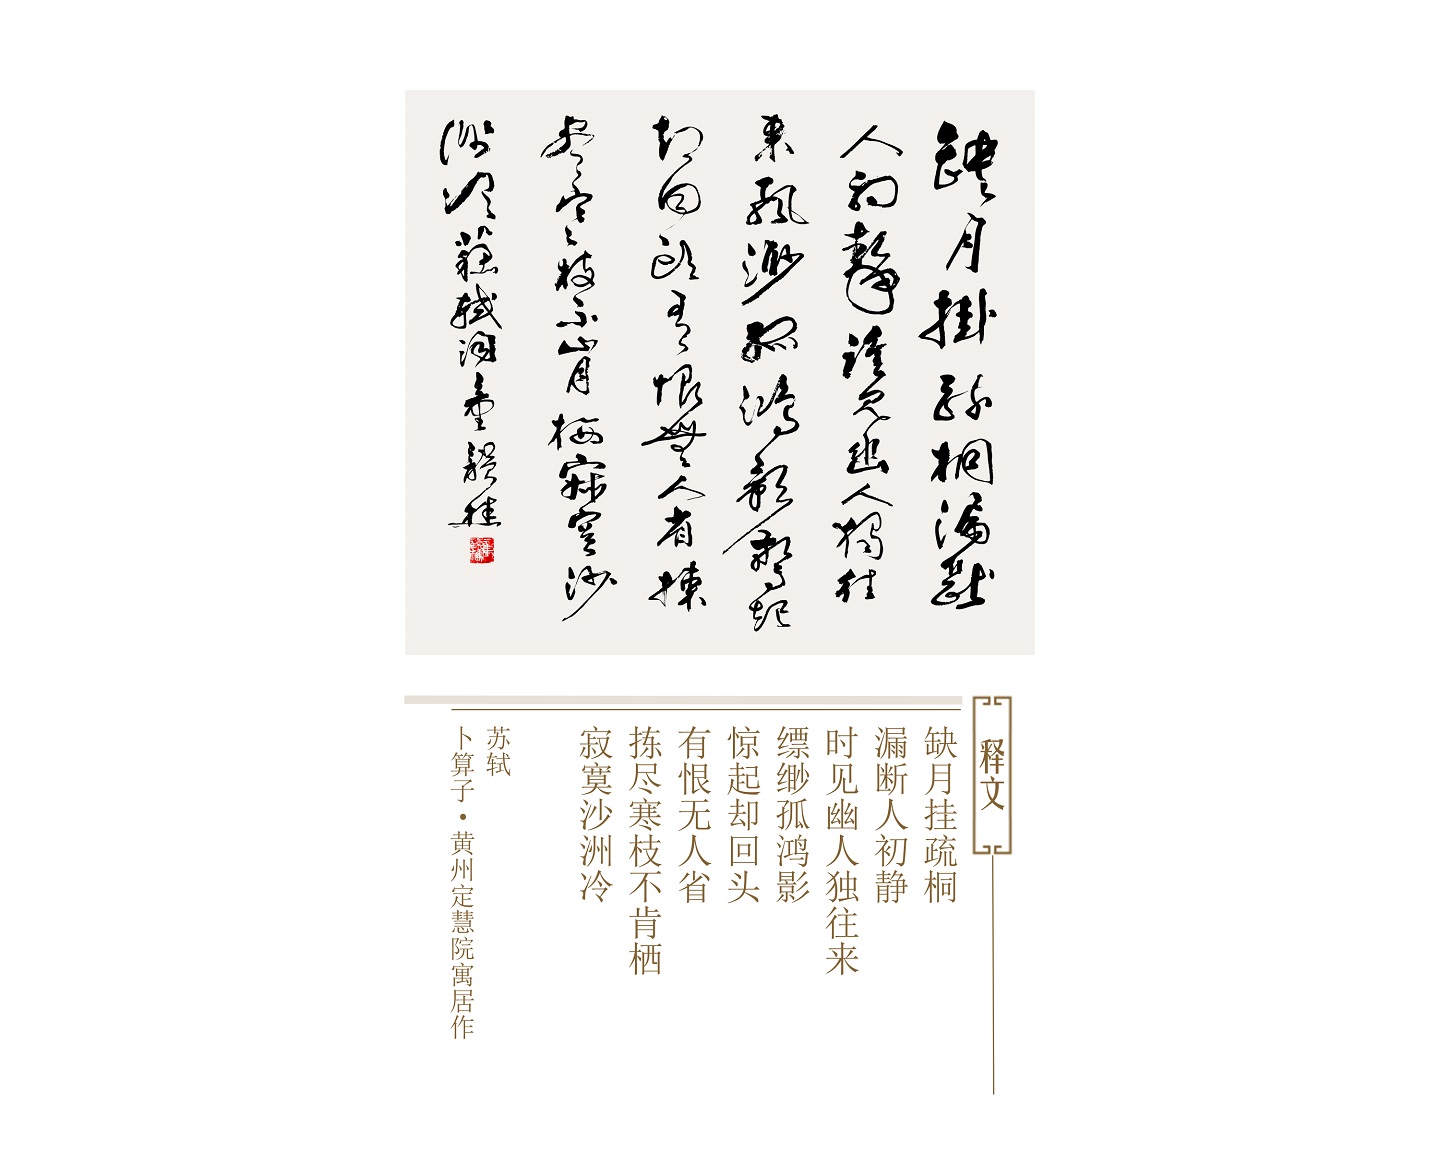 缺月掛疏桐漏斷
人初靜誰見幽人獨往
来飄渺孤鴻影驚起
却回頭有恨無人省揀
尽寒枝不肯栖寂寞沙
洲冷蘇軾詞童
释文
缺月挂疏桐
漏断人初静
时见幽人独往来
缥缈孤鸿影
惊起却回头
有恨无人省
拣尽寒枝不肯栖
寂寞沙洲冷
苏轼
卜算子·黄州定慧院寓居作